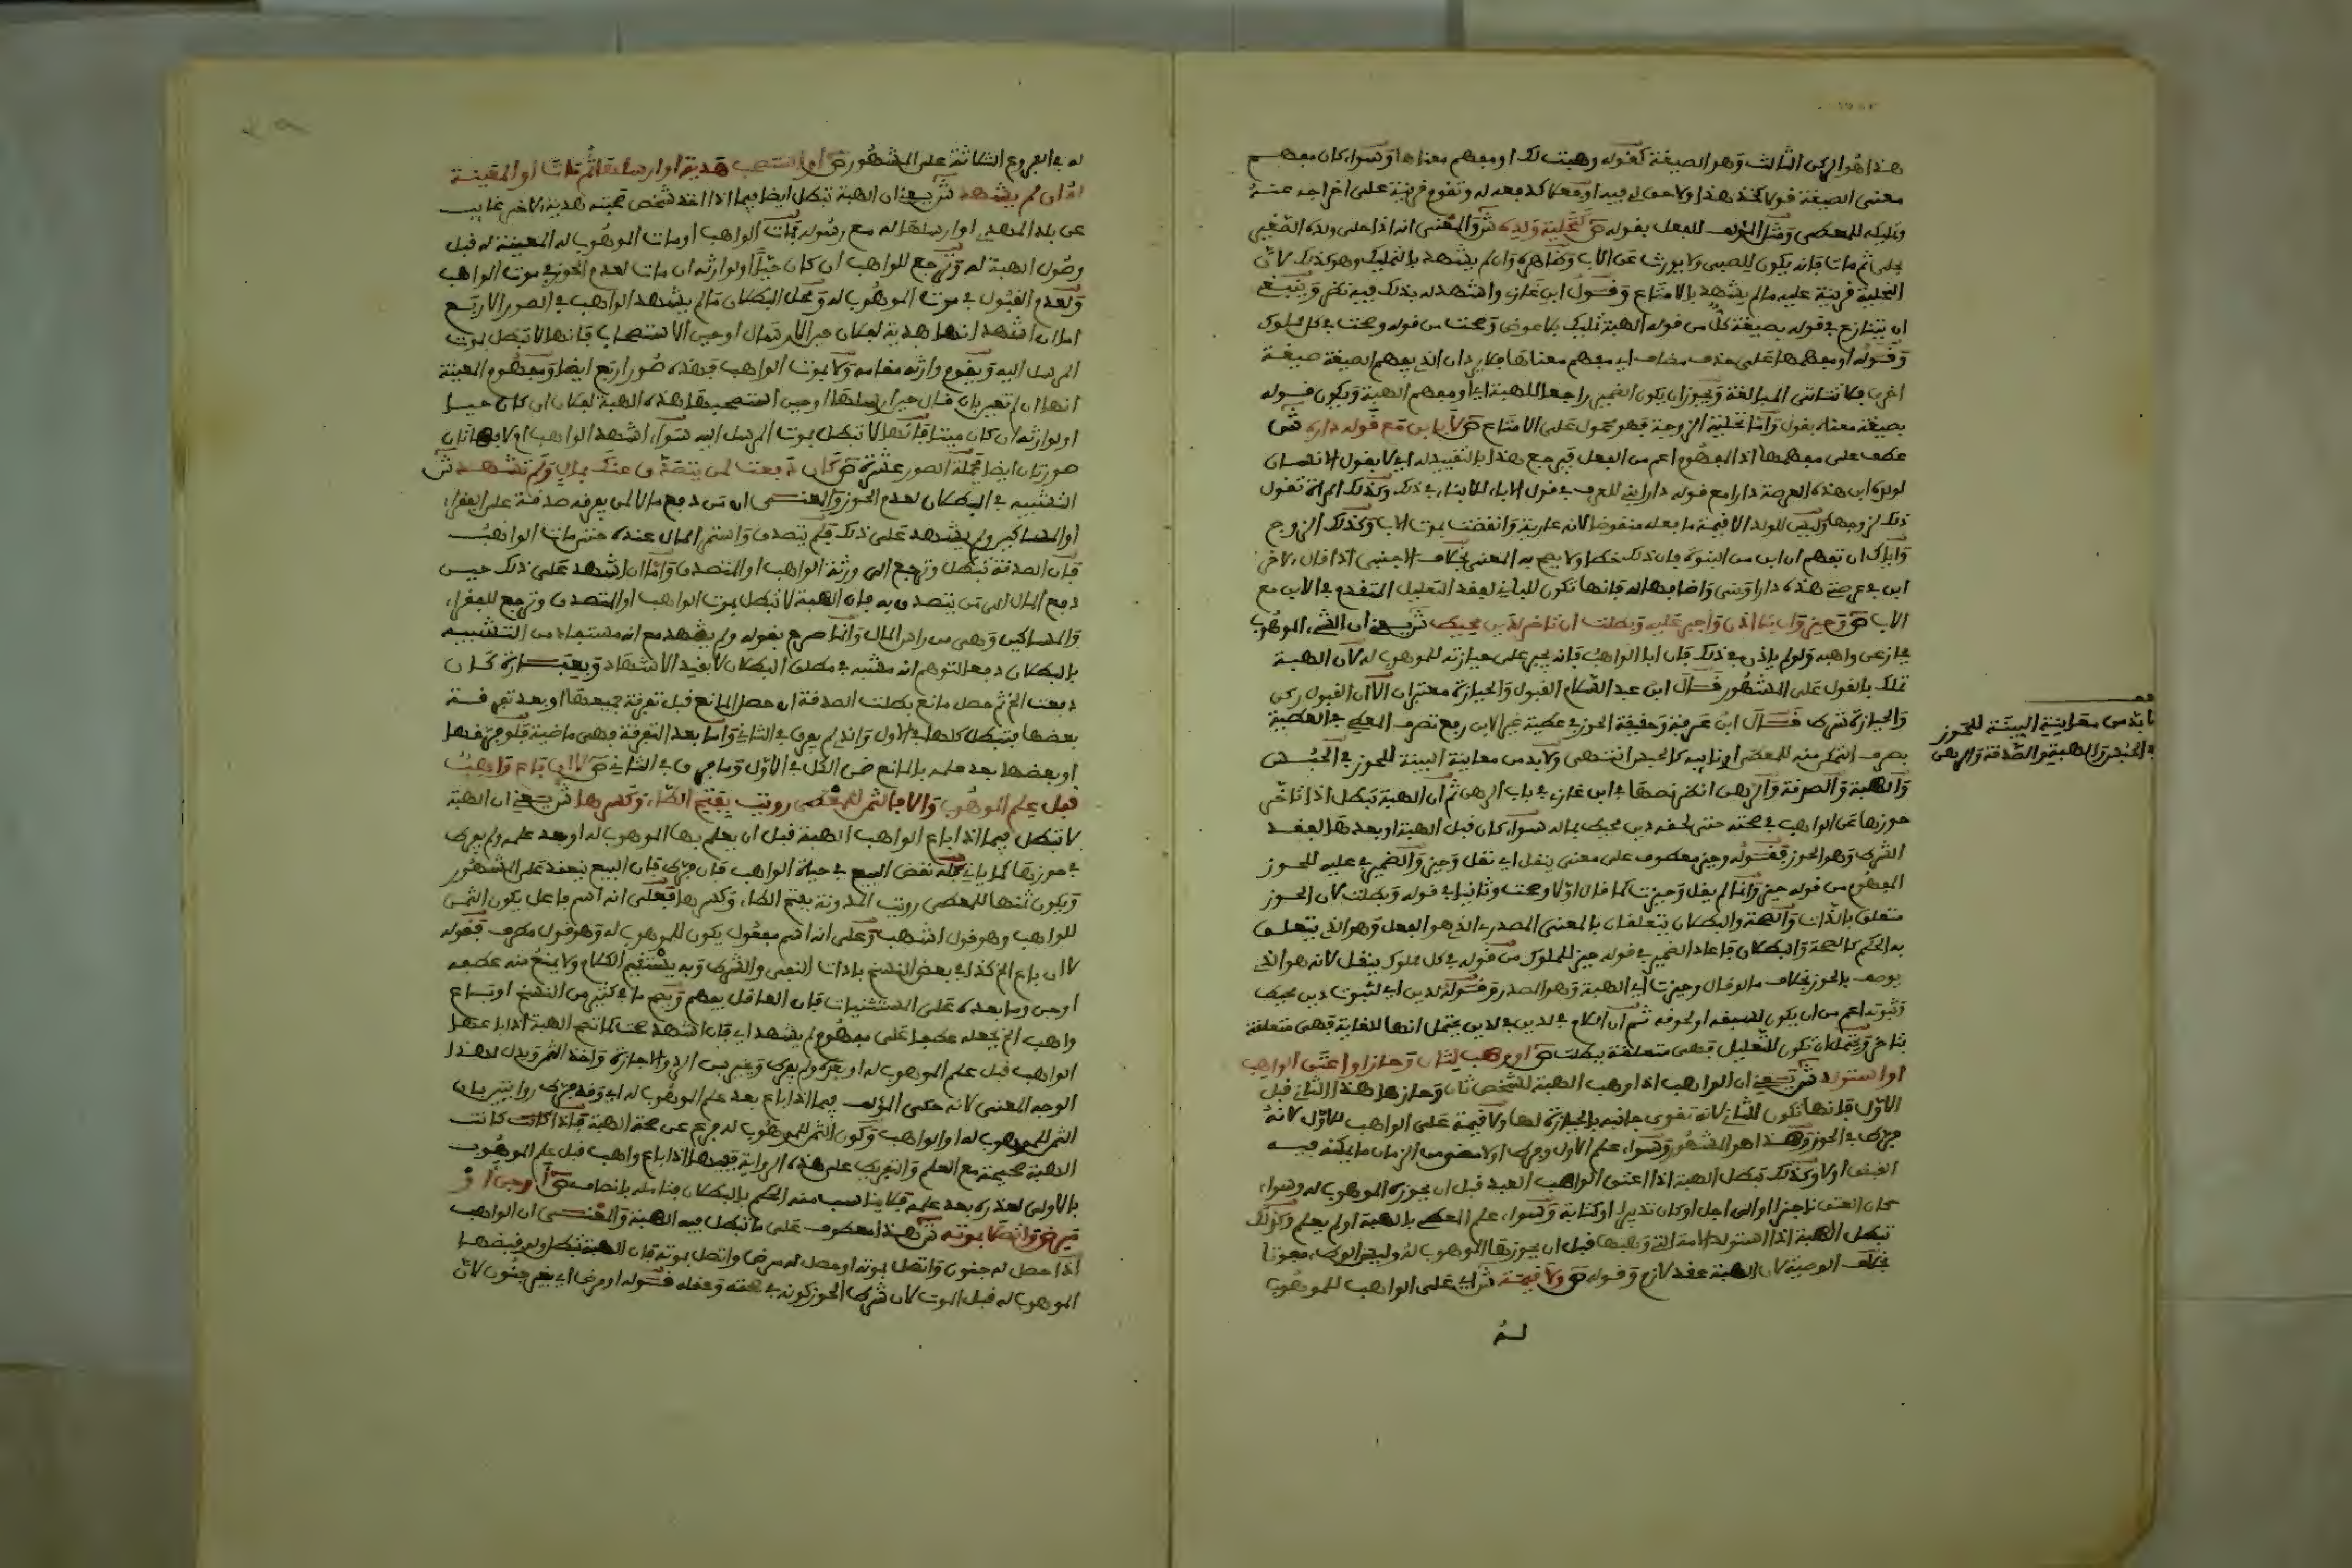 هذا هو الركن الثالث وهو الصيغة كقوله وهبت لك او مفهم معناها وسواء كان مفهم
معنى الصيغة قولا كخذ هذا ولا حق لي فيه او فعلا كدفعه له وتقوم قرينة على اخراجه عنه
وتمليكه للمعطى ومثل المؤلف للفعل بقوله ص كتحلية ولده ش والمعنى انه اذا حلى ولده الصغير
بحلي ثم مات فانه يكون للصبي ولا يورث عن الاب وظاهره وان لم يشهد بالتمليك وهو كذلك لان
التحلية قرينة عليه ما لم يشهد بالامتاع وقول ابن غازي واشهد له بذلك فيه نظر وينبغي
ان يتنازع في قوله بصيغة كل من قوله الهبة تمليك بلا عوض وصحت من قوله وصحت في كل مملوك
وقوله او مفهمها على حذف مضاف اي مفهم معناها فلا يرد ان الذي يفهم الصيغة صيغة
اخرى فلا تتاتى المبالغة ويجوز ان يكون الضمير راجعا للهبة اي او مفهم الهبة ويكون قوله
بصيغة معناه بقول واما تحلية الزوجة فهو محمول على الامتاع ص لا بابن مع قوله داره ش
عطف على مفهمها اذ المفهوم اعم من الفعل فيرجع هذا بالتقييد له اي لا بقول الانسان
لولده ابن هذه العرصة دارا مع قوله داراي للعرف في قول الاباء للابناء في ذلك وكذلك المراة تقول
ذلك لزوجها وليس للولد الا قيمة ما فعله منقوضا لانه عارية وانقضت بموت الاب وكذلك الزوج
واياك ان تفهم ان ابن من البنوة فان ذلك خطا ولا يصح به المعنى بخلاف الاجنبي اذا قال لاخر
ابن في عرصتي هذه دارا وشيء واضافها له فانها تكون للباني لفقد التعليل المتقدم في الابن مع
الاب ص وحيز وان بلا اذن واجبر عليه وبطلت ان تاخر لدين محيط ش يعني ان الشيء الموهوب
يحاز عن واهبه ولو لم ياذن في ذلك فان ابا الواهب فانه يجبر على حيازته للموهوب له لان الهبة
تملك بالقول على المشهور قال ابن عبد السلام القبول والحيازة معتبران الا ان القبول ركن
والحيازة شرط قال ابن عرفة وحقيقة الحوز في عطية غير الابن رفع تصرف المعطي في العطية
بصرف التمكن منه للمعطى او نايبه كالحبس انتهى ولا بد من معاينة البينة للحوز في الحبس
والهبة والصدقة والرهن انظر نصها في ابن غازي في باب الرهن ثم ان الهبة تبطل اذا تاخر
حوزها عن الواهب في صحته حتى لحقه دين محيط بماله سواء كان قبل الهبة او بعدها لفقد
الشرط وهو الحوز فقوله وحيز معطوف على معنى ينقل اي نقل وحيز والضمير في عليه للحوز
المفهوم من قوله حيز وانما لم يقل وحيزت كما قال اولا وصحت وثانيا في قوله وبطلت لان الحوز
متعلق بالذات والصحة والبطلان يتعلقان بالمعنى المصدري الذي هو الفعل وهو الذي يتعلق
به الحكم كالصحة والبطلان فاعاد الضمير في قوله حيز للمملوك من قوله في كل مملوك ينقل لانه هو الذي
يوصف بالحوز بخلاف ما لو قال وحيزت اي الهبة وهو المصدر قوله لدين اي لثبوت دين محيط
وثبوته اعم من ان يكون لسبقه او لحوقه ثم ان اللام في لدين يحتمل انها للغاية فهي متعلقة
بتاخر ويحتمل ان تكون للتعليل فهي متعلقة ببطلت ص او وهب لثان وحاز او اعتق الواهب
او استولد ش يعني ان الواهب اذا وهب الهبة لشخص ثان وحازها هذا الثاني قبل
الاول فانها تكون للثاني لانه تقوى جانبه بالحيازة لها ولا قيمة على الواهب للاول لانه
فرط في الحوز وهذا هو المشهور وسواء علم الاول وفرط او لا مضى من الزمان ما يمكنه فيه
القبض او لا وكذلك تبطل الهبة اذا اعتق الواهب العبد قبل ان يحوزه الموهوب له وسواء
كان العتق ناجزا او الى اجل او كان تدبيرا او كتابة وسواء علم المعطى بالهبة او لم يعلم وكذلك
تبطل الهبة اذا استولد الامة التي وهبها قبل ان يحوزها الموهوب له وليس الوطء مفوتا
بخلاف الوصية لان الهبة عقد لازم وقوله ص ولا قيمة ش اي على الواهب للموهوب
له
قف
لا بد من معاينة البينة للحوز
في الحبس والهبة والصدقة والرهن
له في الفروع الثلاثة على المشهور ص او استصحب هدية او ارسلها ثم مات او المعينة
له ان لم يشهد ش يعني ان الهبة تبطل ايضا فيما اذا اخذ شخص صحبته هدية لاخر غايب
عن بلد المهدي او ارسلها له مع رسوله فمات الواهب او مات الموهوب له المعينة له قبل
وصول الهبة له وترجع للواهب ان كان حيا او لوارثه ان مات لعدم الحوز في موت الواهب
ولعدم القبول في موت الموهوب له ومحل البطلان ما لم يشهد الواهب في الصور الاربع
اما ان اشهد انها هدية لفلان حين الارسال او حين الاستصحاب فانها لا تبطل بموت
المرسل اليه ويقوم وارثه مقامه ولا بموت الواهب فهذه صور اربع ايضا ومفهوم المعينة
انها ان لم تعين بان قال حين ارسلها او حين استصحبها هذه الهبة لفلان ان كان حيا
او لوارثه ان كان ميتا فانها لا تبطل بموت المرسل اليه سواء اشهد الواهب او لا فهاتان
صورتان ايضا فجملة الصور عشرة ص كان دفعت لمن يتصدق عنك بمال ولم تشهد ش
التشبيه في البطلان لعدم الحوز والمعنى ان من دفع مالا لمن يفرقه صدقة على الفقراء
او المساكين ولم يشهد على ذلك فلم يتصدق واستمر المال عنده حتى مات الواهب
فان الصدقة تبطل وترجع الى ورثة الواهب او المتصدق واما ان اشهد على ذلك حين
دفع المال الى من يتصدق به فان الهبة لا تبطل بموت الواهب او المتصدق وترجع للفقراء
والمساكين وهي من راس المال وانما صرح بقوله ولم يشهد مع انه مستفاد من التشبيه
بالبطلان دفعا لتوهم انه مشبه في مطلق البطلان لا بقيد الاشهاد وبعبارة كان
دفعت الخ ثم حصل مانع بطلت الصدقة ان حصل المانع قبل تفرقة جميعها او بعد تفرقة
بعضها فتبطل كلها في الاول والذي لم يفرق في الثاني واما بعد التفرقة فهي ماضية فلو فرقها
او بعضها بعد علمه بالمانع ضمن الكل في الاول وما فرق في الثاني ص لا ان باع واهب
قبل علم الموهوب والا فالثمن للمعطى رويت بفتح الطاء وكسرها ش يعني ان الهبة
لا تبطل فيما اذا باع الواهب الهبة قبل ان يعلم بها الموهوب له او بعد علمه ولم يفرط
في حوزها لما ياتي فله نقض البيع في حياة الواهب فان فرط فان البيع ينفذ على المشهور
ويكون ثمنها للمعطى رويت المدونة بفتح الطاء وكسرها فعلى انه اسم فاعل يكون الثمن
للواهب وهو قول اشهب وعلى انه اسم مفعول يكون للموهوب له وهو قول مطرف فقوله
لا ان باع الخ كذا في بعض النسخ باداة النفي والشرط وبه يستقيم الكلام ولا يمنع منه عطفه
او جن وما بعده على المستثنيات فان العاقل يفهم ويصح ما في كثير من النسخ او باع
واهب الخ بجعله عطفا على مفهوم لم يشهد اي فان اشهد صحت كما تصح الهبة اذا باعها
الواهب قبل علم الموهوب له او بعده ولم يفرط ويخير بين الرد والاجازة واخذ الثمن ويدل لهذا
الوجه المعنى لانه حكى المؤلف فيما اذا باع بعد علم الموهوب له اي وقد فرط روايتين بان
الثمن للموهوب له او الواهب وكون الثمن للموهوب له فرع عن صحة الهبة فاذا كانت
الهبة صحيحة مع العلم والتفريط على هذه الرواية فبهذا اذا باع واهب قبل علم الموهوب
بالاولى لعذره بعد علمه فلا يناسب منه الحكم بالبطلان فتامله بانصاف ص او جن او
مرض واتصلا بموته ش هذا معطوف على ما تبطل فيه الهبة والمعنى ان الواهب
اذا حصل له جنون واتصل بموته او حصل له مرض واتصل بموته فان الهبة تبطل ولو قبضها
الموهوب له قبل الموت لان شرط الحوز كونه في صحته وعقله فقوله او مرض اي بغير جنون لان